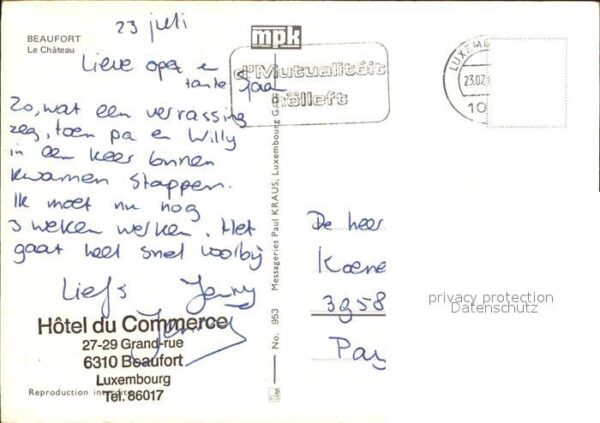 BEAUFORT
Le Château
23 juli
Lieve opa en
tante Sjaan
Zo, wat een verrassing
zeg, toen pa en Willy
in een keer binnen
kwamen stappen.
Ik moet nu nog
3 weken werken. Het
gaat heel snel voorbij
Liefs Jenny
Hôtel du Commerce
27-29 Grand-rue
6310 Beaufort
Luxembourg
Tel. 86017
Reproduction interdite
mpk
No. 953 Messageries Paul KRAUS, Luxembourg
d'Mutualitéit
hëlleft
LUXEMB
23.07.
10
De heer
3958
privacy protection
Datenschutz